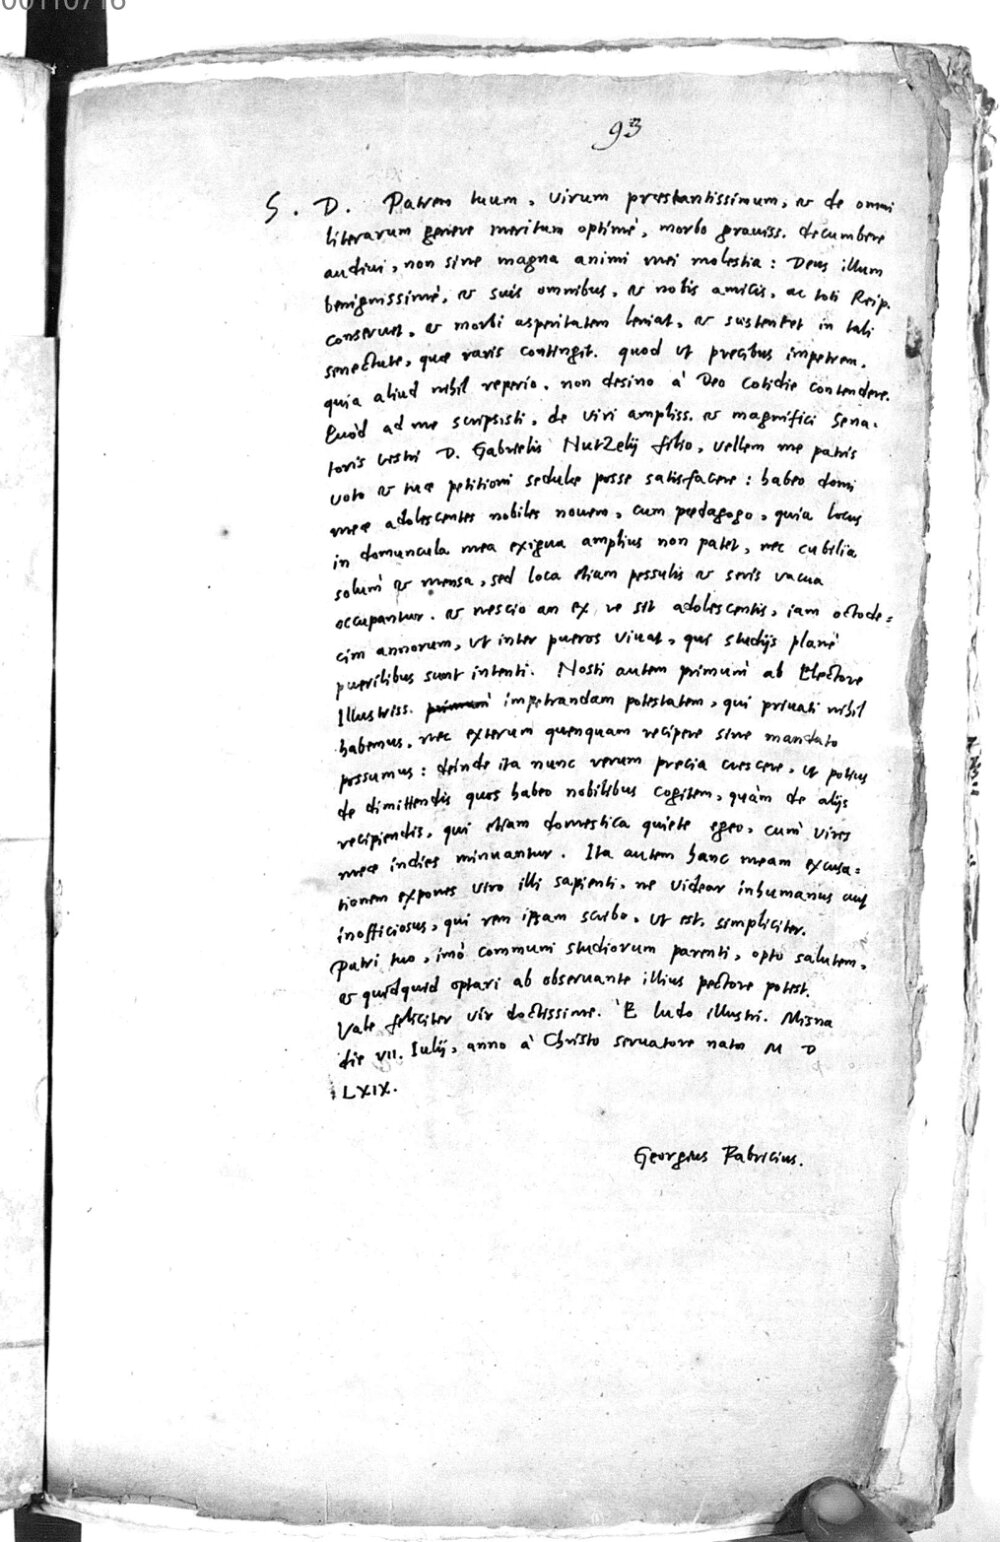 00110716
93
S. D. Patrem tuum, virum præstantissimum, & de omni
literarum genere meritum optimè, morbo grauiss. decumbere
audiui, non sine magna animi mei molestia: Deus illum
benignissimè, & suis omnibus, & nobis amicis, ac toti Reip.
conseruet, & morbi asperitatem leniat, & sustentet in tali
senectute, quæ raris contingit. quod ut precibus impetrem,
quia aliud nihil reperio, non desino à Deo cotidie contendere.
Quòd ad me scripsisti, de viri ampliss. & magnifici Sena-
toris vestri D. Gabrielis Nutzelij filio, vellem me patris
voto & tuæ petitioni sedulæ posse satisfacere: habeo domi
meæ adolescentes nobiles nouem, cum pædagogo, quia locus
in domuncula mea exigua amplius non patet, nec cubilia
solum & mensa, sed loca etiam pessulis & seris vacua
occupantur. & nescio an ex re sit adolescentis, iam octode=
cim annorum, ut inter pueros viuat, qui studijs planè
puerilibus sunt intenti. Nosti autem primum ab Electore
Illustriss. primum impetrandam potestatem, qui priuati nihil
habemus, nec exterum quenquam recipere sine mandato
possumus: deinde ita nunc rerum precia crescere, ut potius
de dimittendis quos habeo nobilibus cogitem, quàm de alijs
recipiendis, qui etiam domestica quiete egeo, cum vires
meæ indies minuantur. Ita autem hanc meam excusa=
tionem expones viro illi sapienti, ne videar inhumanus aut
inofficiosus, qui rem ipsam scribo, ut est, simpliciter.
Patri tuo, imò communi studiorum parenti, opto salutem,
& quidquid optari ab obseruante illius pectore potest.
Vale feliciter vir doctissime. E ludo illustri. Misna
die VII. Iulij, anno à Christo seruatore nato M D
LXIX.
Georgius Fabricius.